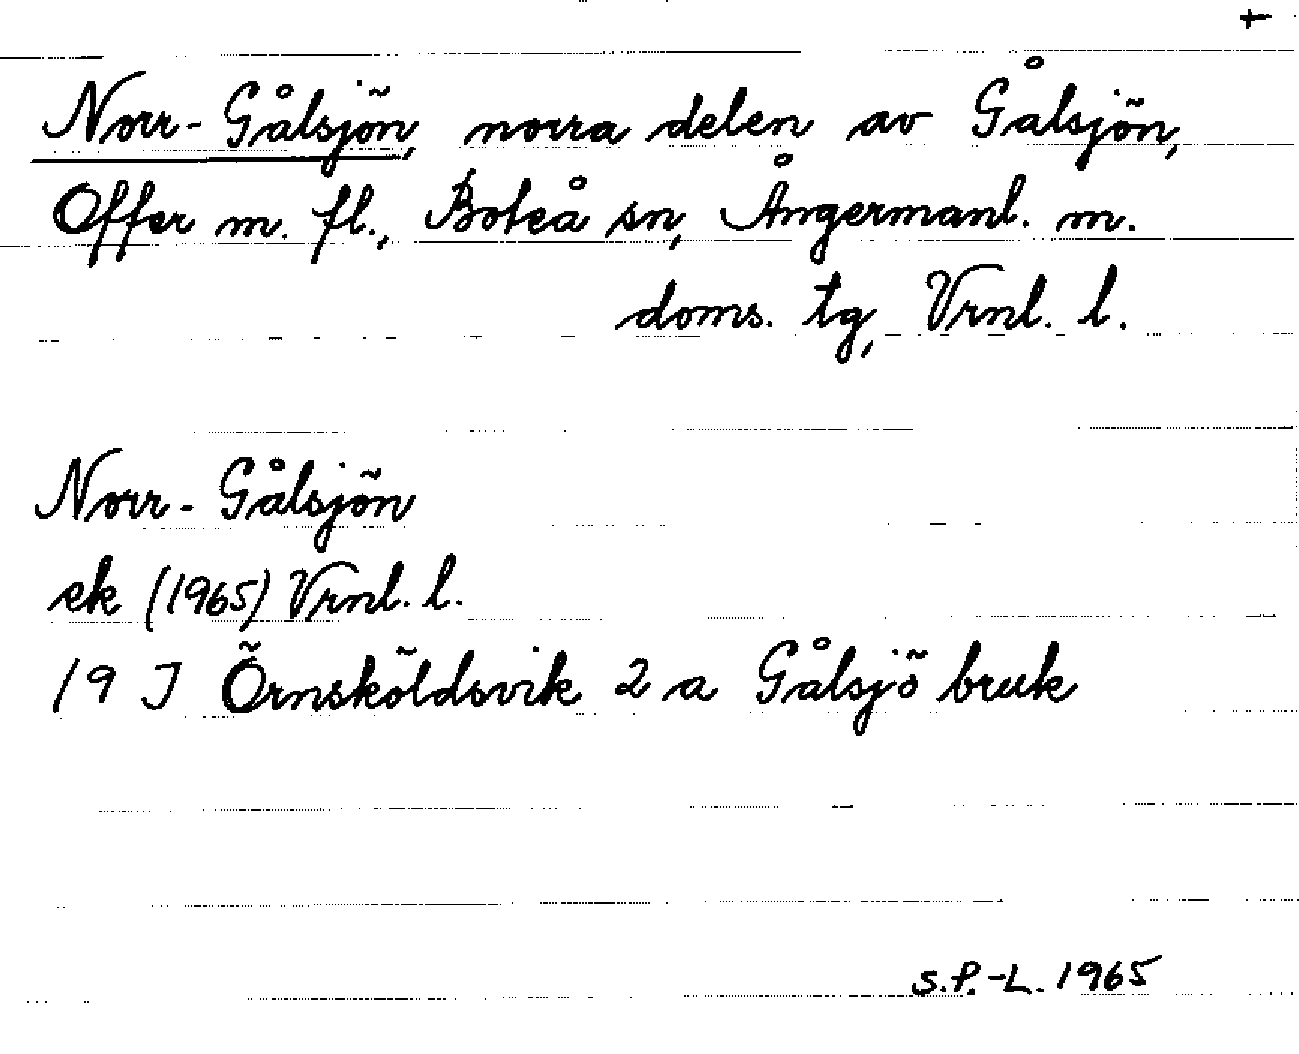 +
Norr-Gålsjön, norra delen av Gålsjön,
Offer m. fl., Boteå sn, Ångermanl. m.
doms. tg, Vrnl. l.
Norr-Gålsjön
ek (1965) Vrnl. l.
19 J Örnsköldsvik 2 a Gålsjö bruk
S.P.-L. 1965